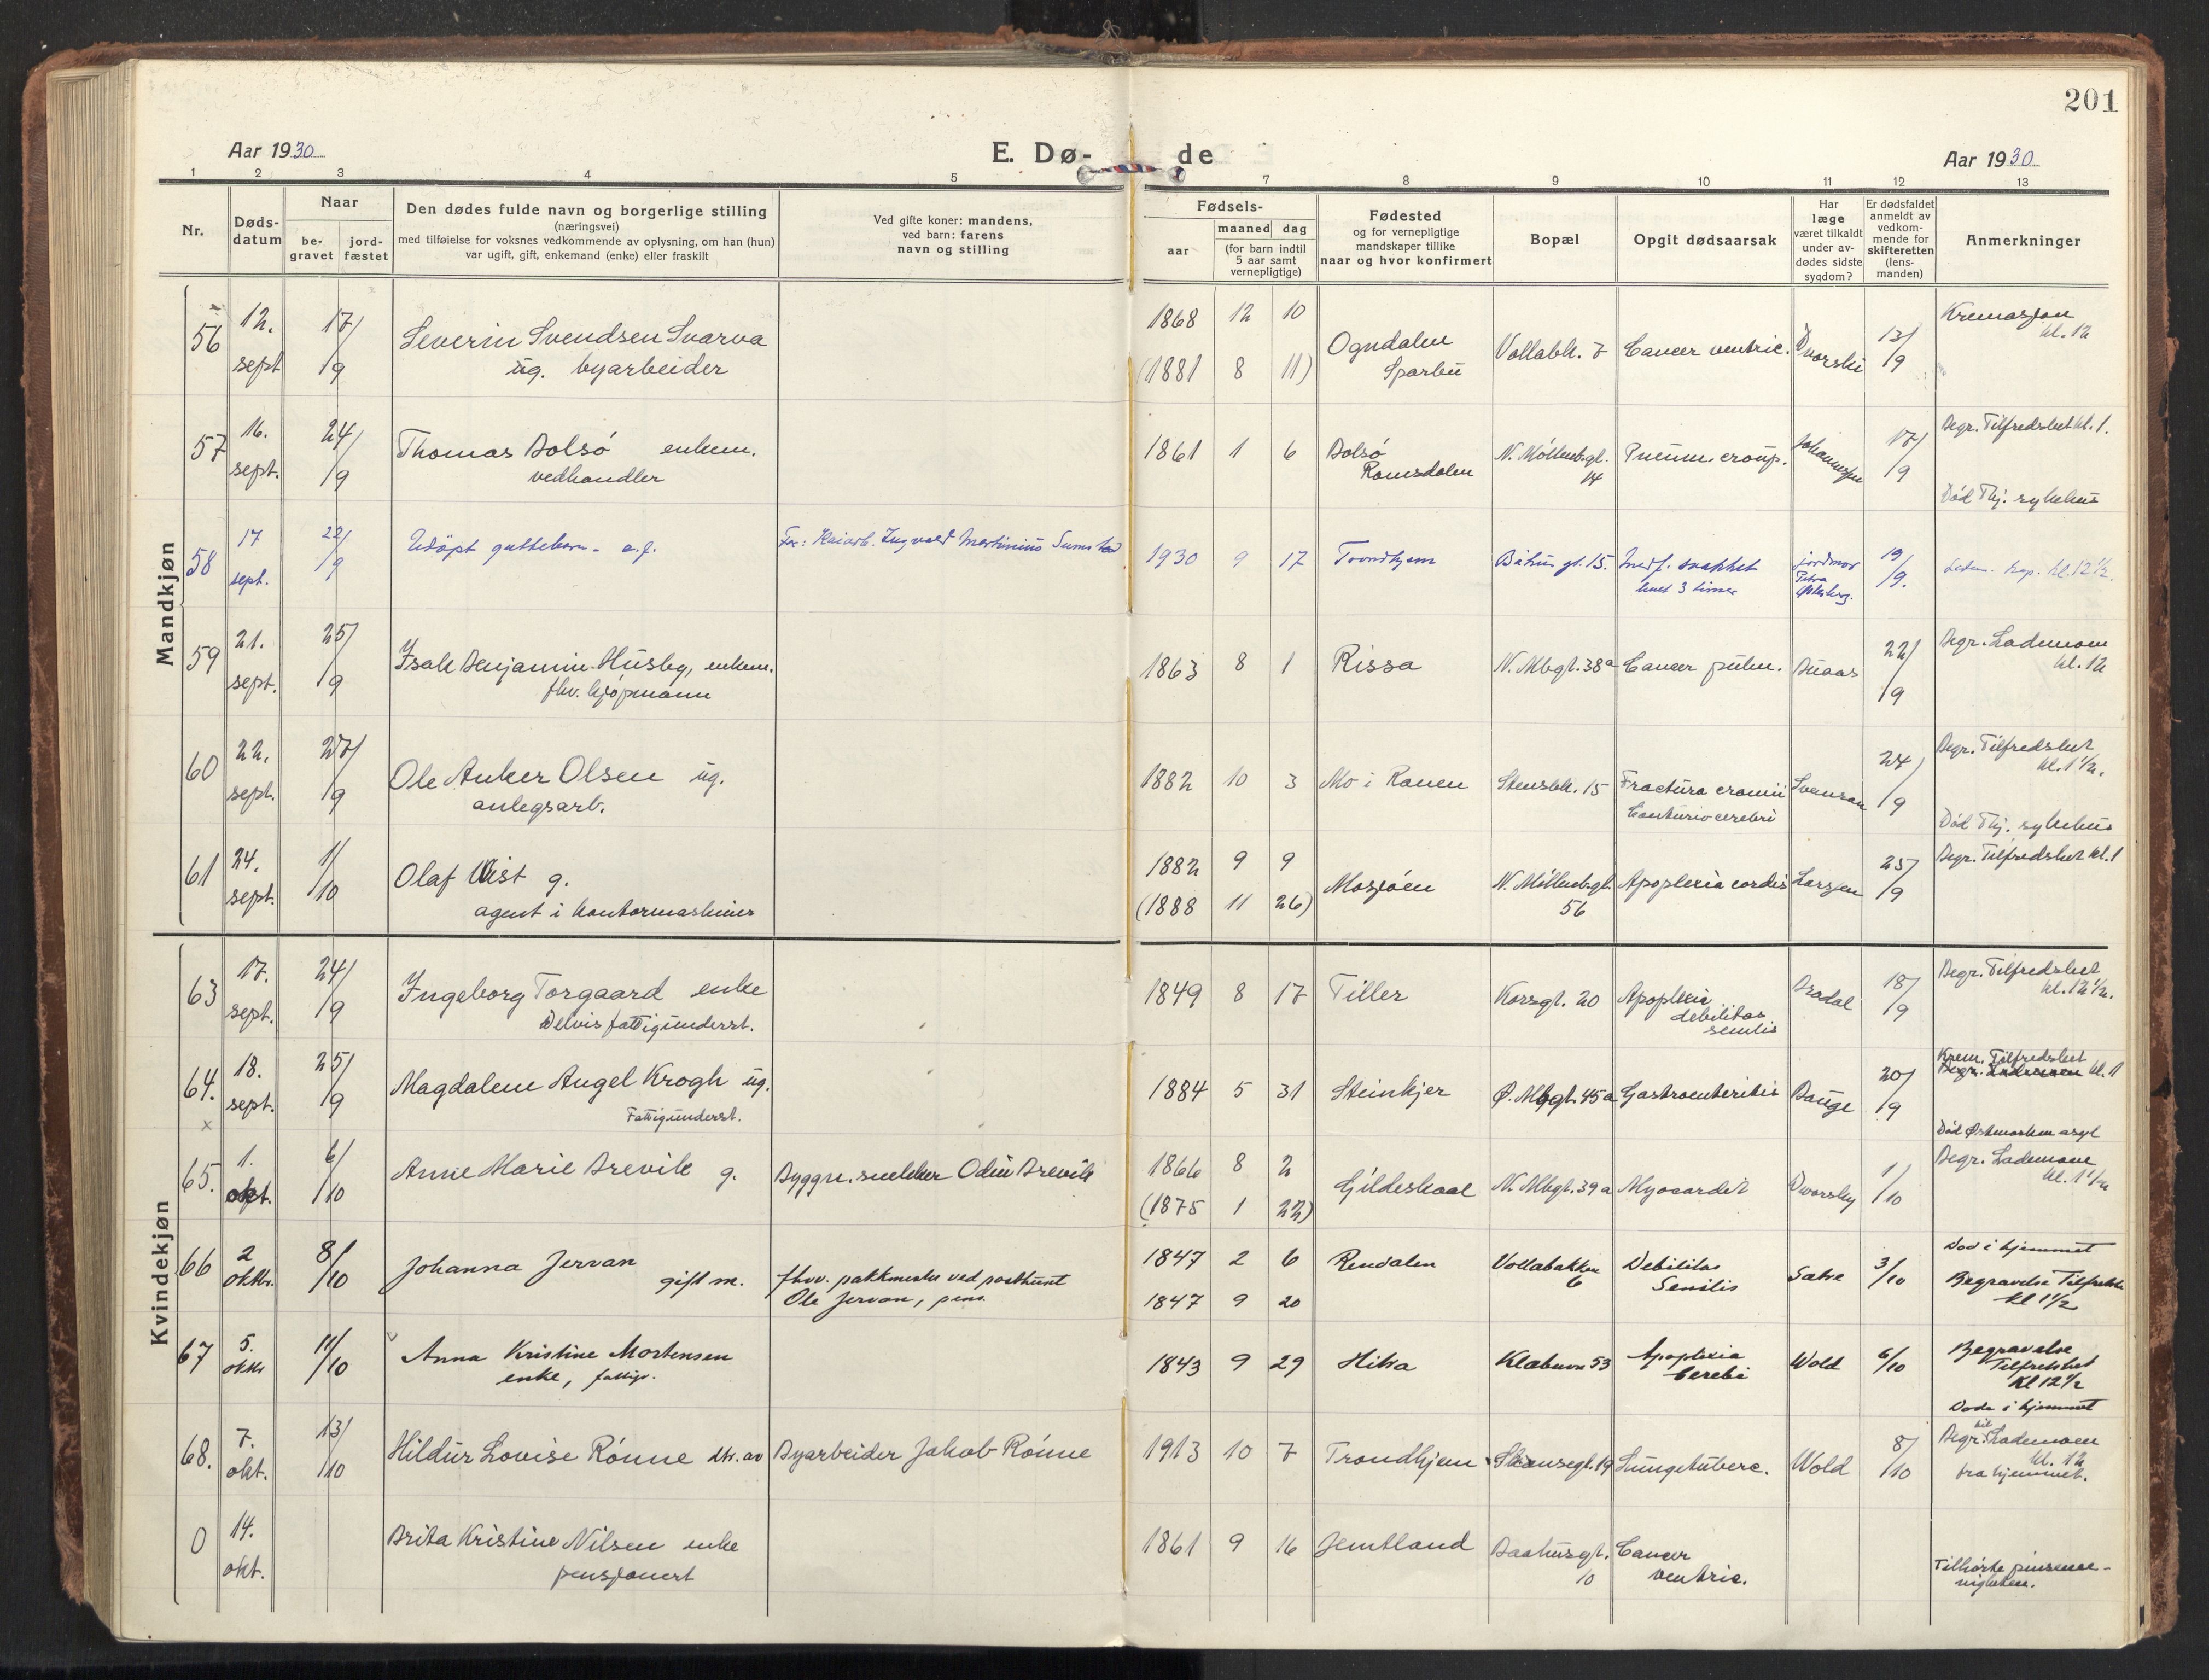 201
Aar 1930
E. Dø-
de
Aar 1930
1 2 3 4 5 7 8 9 10 11 12 13
Nr.
Døds-
datum
Naar
be-
gravet
jord-
fæstet
Den dødes fulde navn og borgerlige stilling
(næringsvei)
med tilføielse for voksnes vedkommende av oplysning, om han (hun)
var ugift, gift, enkemand (enke) eller fraskilt
Ved gifte koner: mandens,
ved barn: farens
navn og stilling
Fødsels-
aar
maaned dag
(for barn indtil
5 aar samt
vernepligtige)
Fødested
og for vernepligtige
mandskaper tillike
naar og hvor konfirmert
Bopæl
Opgit dødsaarsak
Har
læge
været tilkaldt
under av-
dødes sidste
sygdom?
Er dødsfaldet
anmeldt av
vedkom-
mende for
skifteretten
(lens-
manden)
Anmerkninger
Mandkjøn
56 12. sept 17/9
Severin Svendsen Svarva
ug. byarbeider
1868 12 10
(1881 8 11)
Ogndalen
Sparbu
Vollabk. 7
Cancer ventric.
Dvorski
13/9
Kremasjon
kl. 12
57 16. sept. 24/9
Thomas Bolsø enkem.
vedhandler
1861 1 6
Bolsø
Romsdalen
N. Møllenbgt.
14
Pneum. croup.
Johannessen
17/9
Begr. Tilfredshet kl. 1.
Død Thj. sykehus
58 17 sept. 22/9
Udøpt guttebarn - e.f.
Far: Kaiarb. Ingvald Martinius Sumstad
1930 9 17
Trondhjem
Båhus gt. 15.
Medf. svakhet
levet 3 timer
jordmor
Petra
Østerberg.
19/9.
Ladem. kap. kl. 12 1/2.
59 21. sept. 25/9
Isak Benjamin Husby, enkem.
fhv. kjøpmann
1863 8 1
Rissa
N. Mbgt. 38a
Cancer pulm.
Buaas
22/9
Begr. Lademoen
kl. 12
60 22. sept. 27/9
Ole Anker Olsen ug.
anlegsarb.
1882 10 3
Mo i Ranen
Stensbk. 15
Fractura cranii
Contusio cerebri
Svenson
24/9
Begr. Tilfredshet
kl. 1 1/2.
Død Thj. sykehus
61 24. sept. 1/10
Olaf Wist g.
agent i kontormaskiner
1882 9 9
(1888 11 26)
Mosjøen
N. Møllenbgt.
56
Apoplexia cordis
Larssen
25/9
Begr. Tilfredshet kl. 1
Kvindekjøn
63 17. sept. 24/9
Ingeborg Torgaard enke
Delvis fattigunderst.
1849 8 17
Tiller
Korsgt. 20
Apoplexia
debilitas
senilis
Bradal
18/9
Begr. Tilfredshet
kl. 12 1/2.
64. 18. sept. 25/9
Magdalene Angel Krogh ug.
Fattigunderst.
1884 5 31
Steinkjer
Ø. Mbgt. 45a
Gastroenteritis
Bauge
20/9
Krem. Tilfredshet
Begr. Lademoen kl. 1
Død Østmarken asyl
x
65. 1. okt. 6/10
Anne Marie Brevik g.
Byggn. snekker Odin Brevik
1866 8 2
(1875 1 22)
Gildeskaal
N. Mbgt. 39a
Myocardit
Dworsky
1/10
Begr. Lademoen
kl. 1 1/2
66 2 oktbr. 8/10
Johanna Jervan
gift m.
fhvv. pakkmester ved posthuset
Ole Jervan, pens.
1847 2 6
1847 9 20
Rendalen
Vollabakken
6
Debilitas
Senilis
Salve
3/10
Død i hjemmet
Begravelse Tilfredsh.
kl 1 1/2
67 5. oktbr 11/10
Anna Kristine Mortensen
enke, fattigv.
1843 9 29
Hitra
Klæbuvn 53
Apoplexia
Cerebri
Wold
6/10
Begravelse
Tilfredshet
Kl 12 1/2
Døde i hjemmet
68. 7. okt. 13/10
Hildur Lovise Rønne dtr. av
Byarbeider Jakob Rønne
1913 10 7
Trondhjem
Skansegt. 19
Lungetuberc.
Wold
8/10
Begr. Lademoen
kl. 12
fra hjemmet.
0 14. okt.
Brita Kristine Nilsen enke
pensjonert
1861 9 16
Jemtland
Baahusgt.
10
Cancer
ventric.
Tilhørte pinseme-
nigheten.